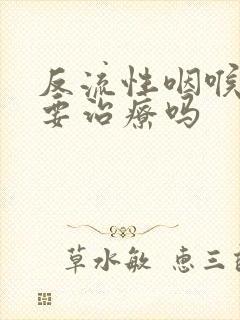 反流性咽喉
要治疗吗
草水敏 惠三